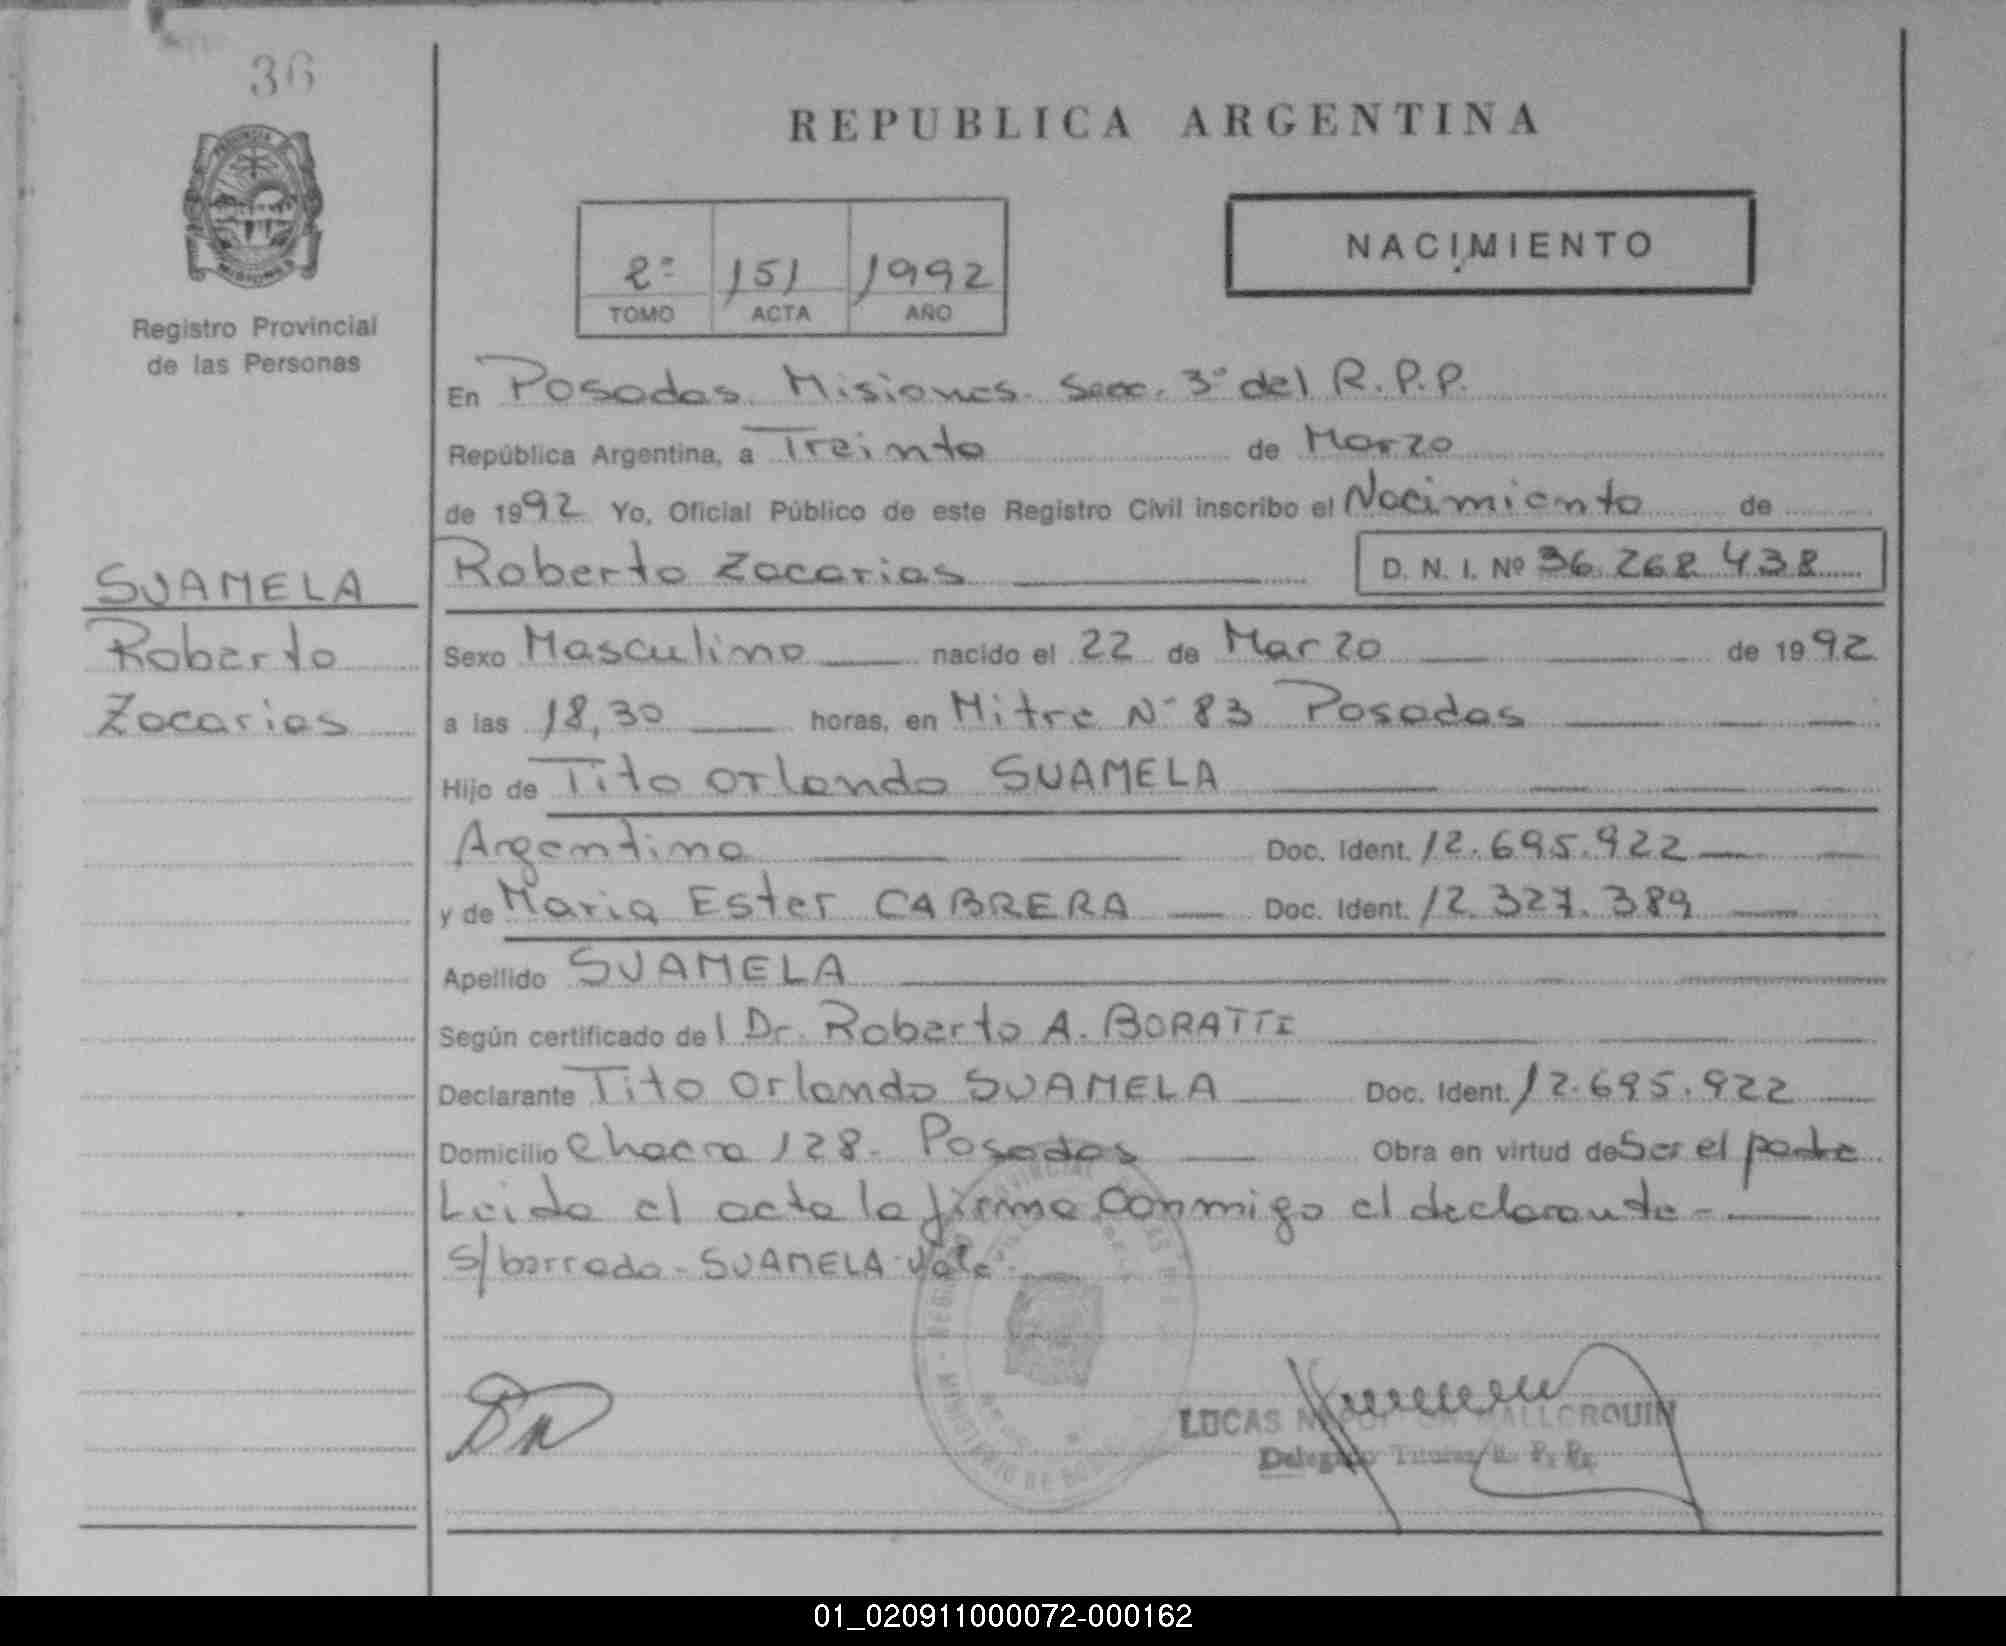 36
REPUBLICA ARGENTINA
NACIMIENTO
2º 151 1992
TOMO ACTA AÑO
Registro Provincial
de las Personas
En Posadas. Misiones. Secc. 3º del R.P.P.
República Argentina, a Treinta de Marzo
de 1992 Yo, Oficial Público de este Registro Civil inscribo el Nacimiento de
Roberto Zacarias D. N. I. Nº 36.268.438
SUAMELA
Roberto
Zacarias
Sexo Masculino nacido el 22 de Marzo de 1992
a las 18,30 horas, en Mitre Nº 83 Posadas
Hijo de Tito Orlando SUAMELA
Argentino Doc. Ident. 12.695.922
y de Maria Ester CABRERA Doc. Ident. 12.327.389
Apellido SUAMELA
Según certificado del Dr. Roberto A. BORATTI
Declarante Tito Orlando SUAMELA Doc. Ident. 12.695.922
Domicilio Chacra 128- Posadas Obra en virtud de Ser el padre
Leida el acta la firma conmigo el declarante-
S/borrado- SUAMELA- Vale-
LUCAS MALLORQUIN
Delegado Titular R. P. P.
01_020911000072-000162